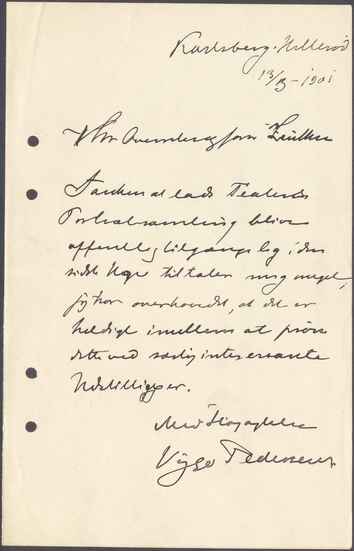 Karlsberg. Hillerød
13/3 - 1901
Hr. Overretssagfører Zeuthen
Tanken at lade Teatrets
Portrætsamling blive
offentlig tilgængelig i den
sidste Uge tiltaler mig meget,
jeg tror overhovedet, at det er
heldigt imellem at prøve
dette med særlig interessante
Udstillinger.
Med Højagtelse
Viggo Pedersen